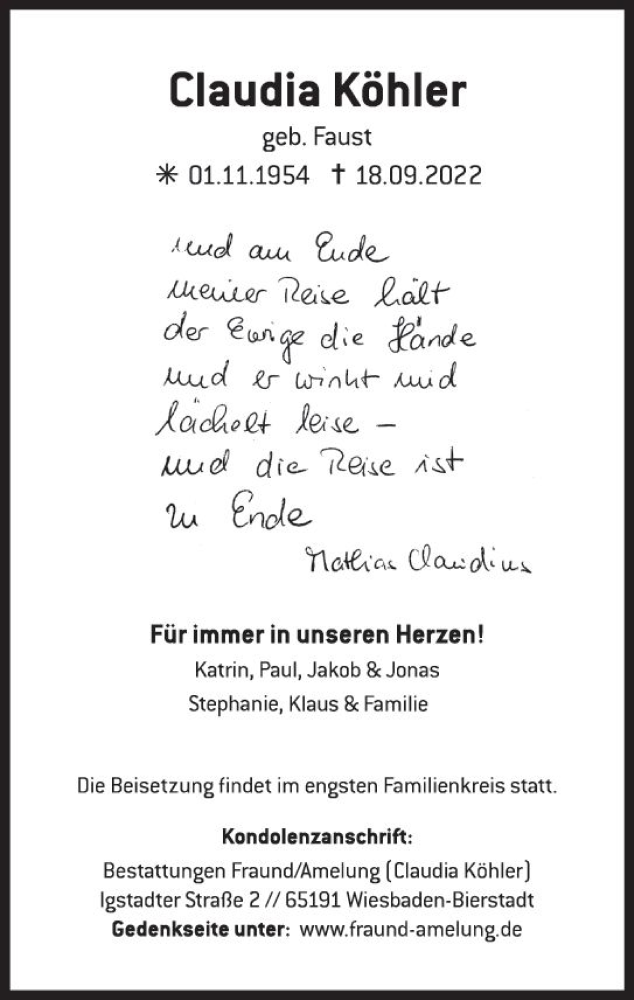 Claudia Köhler
geb. Faust
✳ 01.11.1954 † 18.09.2022
und am Ende
meiner Reise hält
der Ewige die Hände
und er winkt und
lächelt leise –
und die Reise ist
zu Ende
Mathias Claudius
Für immer in unseren Herzen!
Katrin, Paul, Jakob & Jonas
Stephanie, Klaus & Familie
Die Beisetzung findet im engsten Familienkreis statt.
Kondolenzanschrift:
Bestattungen Fraund/Amelung (Claudia Köhler)
Igstadter Straße 2 // 65191 Wiesbaden-Bierstadt
Gedenkseite unter: www.fraund-amelung.de